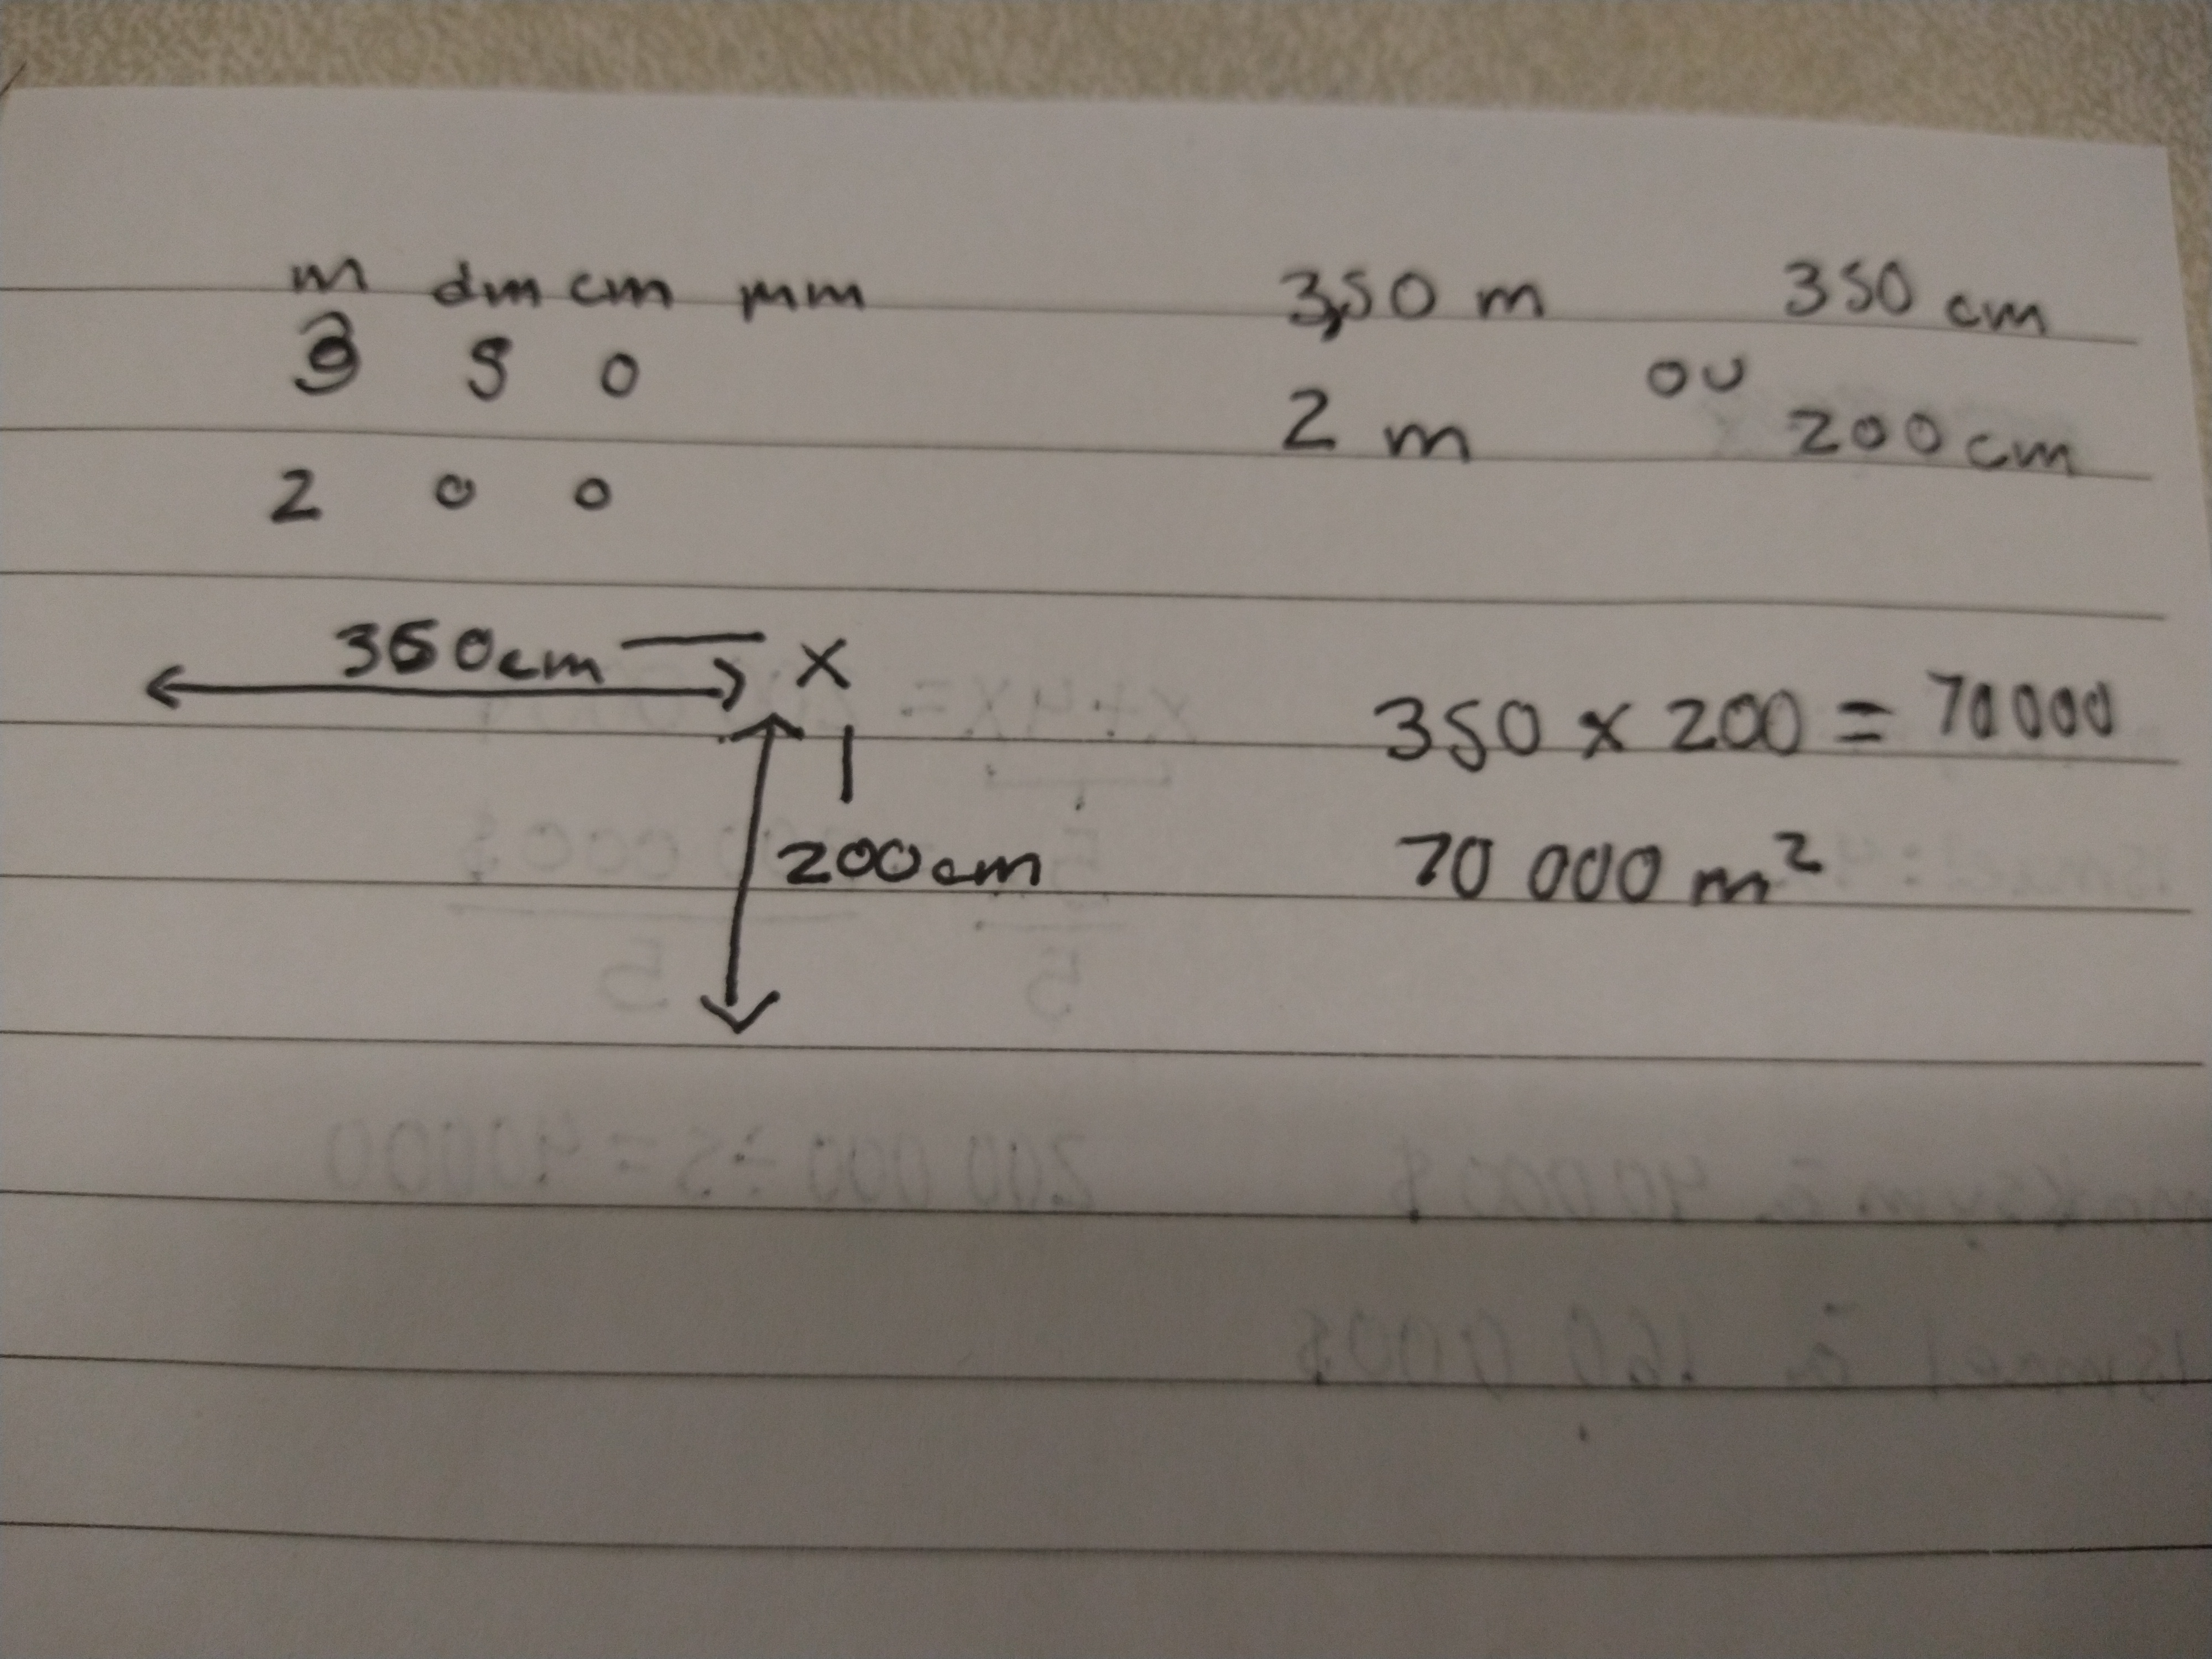 m dm cm mm
3 5 0
2 0 0
3,50 m
2 m
ou
350 cm
200 cm
350cm — x
200cm
350 x 200 = 70000
70 000 m²